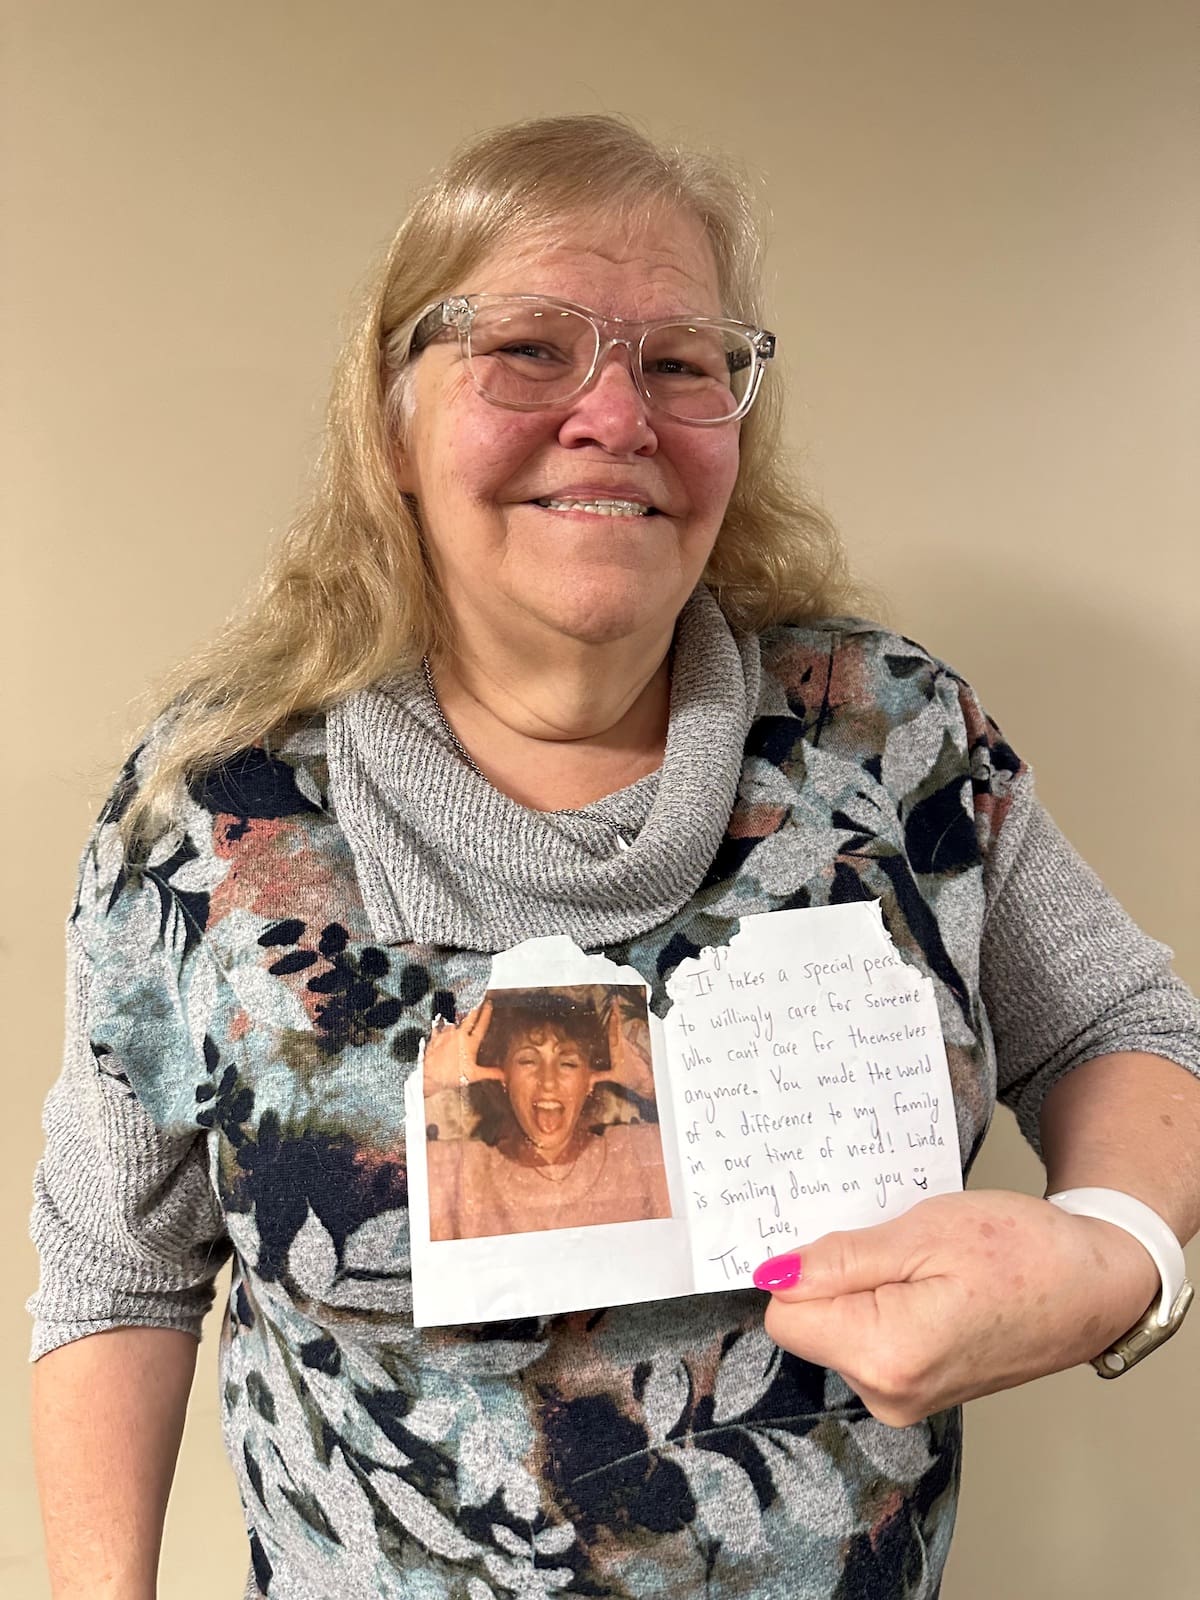 y,
It takes a special pers
to willingly care for someone
who can't care for themselves
anymore. You made the world
of a difference to my family
in our time of need! Linda
is smiling down on you
Love,
The